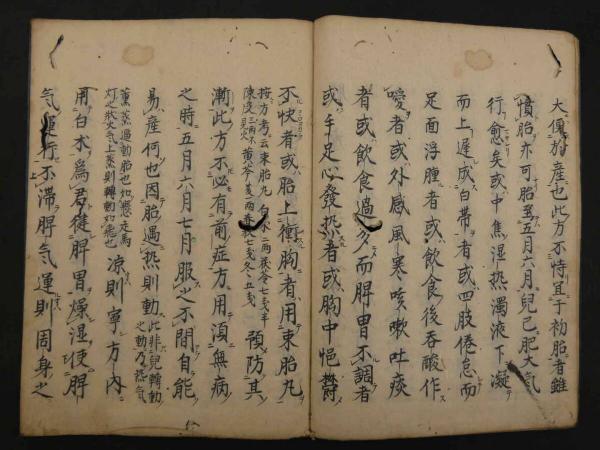 大便於產也此方不特宜于初胎者雖
慣胎亦可胎至五月六月兒已肥大氣
行愈矣或中焦湿热濁液下凝
而上遲成白帯者或四肢倦怠而
足面浮腫者或飲食後吞酸作
噯者或外感風寒咳嗽吐痰
者或飲食過多而脾胃不調者
或手足心發热者或胸中悒欝
不快者或胎上衝胸者用束胎丸
按方考云束胎丸白朮二両茯苓七戔半
陳皮三両黄芩夏一両春秋七戔冬五戔
預防其
漸此方不必有前症方用須無病
之時五月六月七月服之不間自能
易産何也因胎遇热則動
此非兒轉動
之動乃热氣
薫蒸逼動胎也如懸走馬
灯之状火气上蒸則轉動如飛也
凉則寧方内
用白朮為君健脾胃燥湿使脾
气運行不滞脾气運則周身之